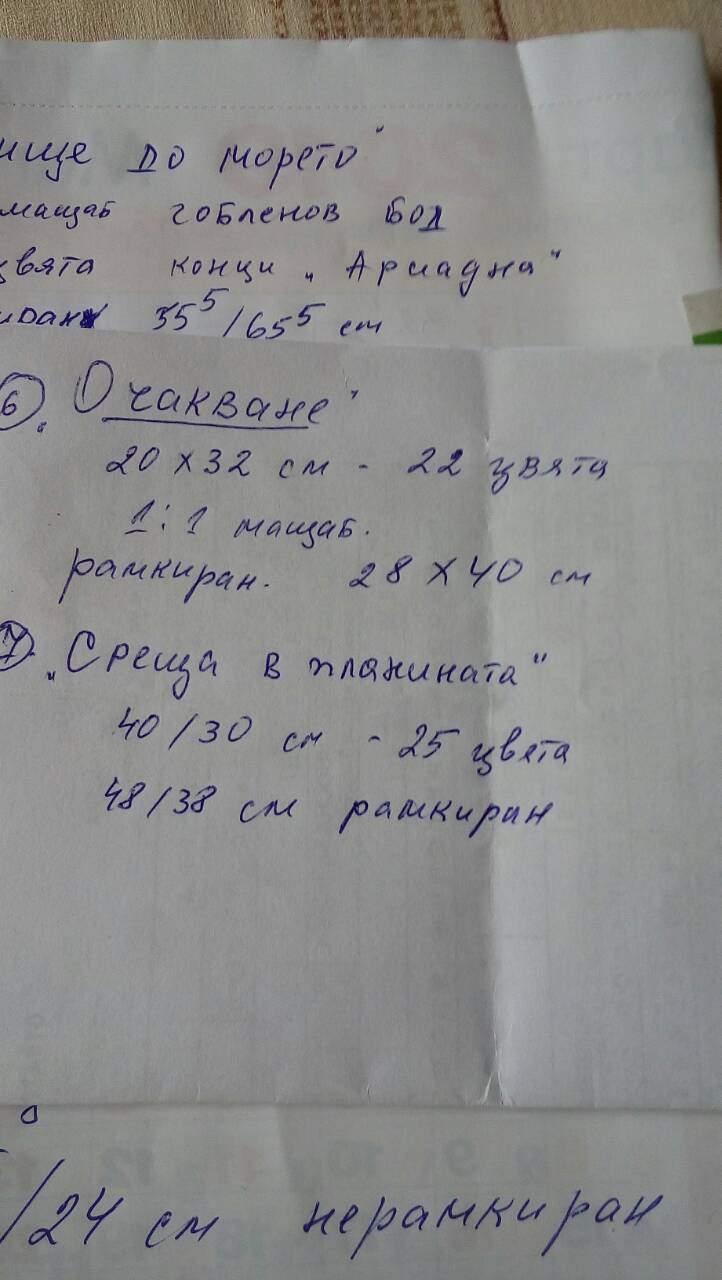 до морето"
мащаб гобленов бод
цвята конци „Ариадна"
35⁵/65⁵ см
6. Очакване"
20 х 32 см - 22 цвята
1:1 мащаб.
рамкиран. 28 х 40 см
7. „Среща в планината"
40/30 см - 25 цвята
48/38 см рамкиран
/24 см нерамкиран